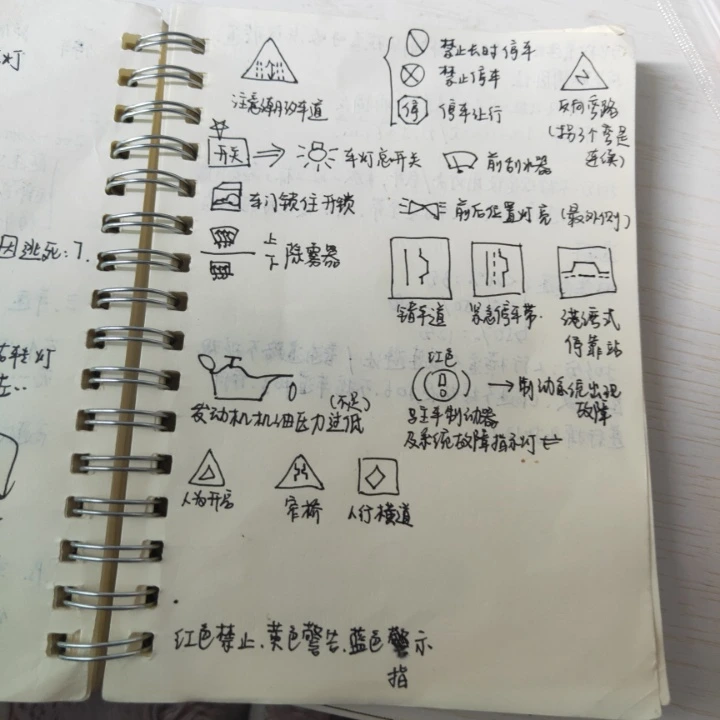 灯
禁止长时停车
禁止停车
停
停车让行
注意潮汐车道
反向弯路
(拐3个弯是
连续)
开关
车灯总开关
前刮水器
车门锁住开锁
前后位置灯亮(最外侧)
上
下
除雾器
因逃死:7.
错车道
紧急停车带
港湾式
停靠站
红色
(不足)
发动机机油压力过低
制动系统出现
故障
驻车制动器
及系统故障指示灯
窄桥
人行横道
红色禁止、黄色警告、蓝色警示
指